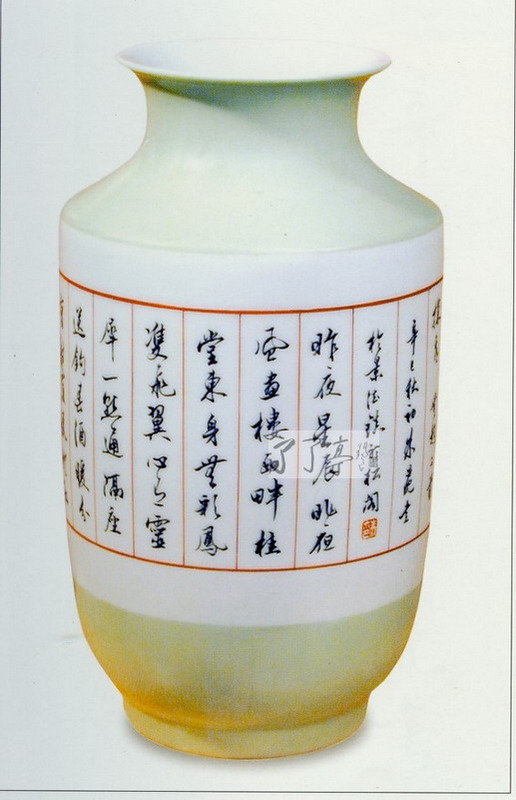 辛巳秋初朱
於景德鎮 松閣
昨夜星辰昨夜
風畫樓西畔桂
堂東身無彩鳳
雙飛翼心有靈
犀一點通隔座
送鈎春酒暖分
了了亭